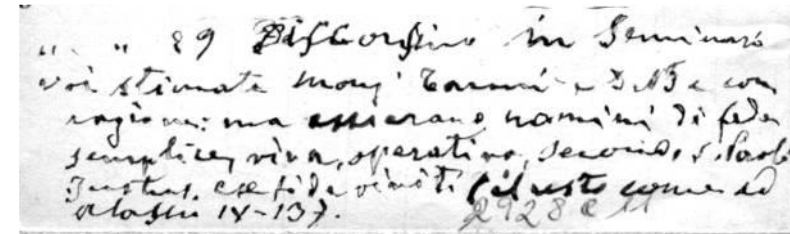 " " 29 Discorsino in Seminario
voi stimate mons' e D N B e con
ragione: ma essi erano uomini di fede
semplice, viva, operativa, secondo s. Paolo
Justus ex fide vivit. (il resto come ad
Alassio IX-137. 2928 e 11